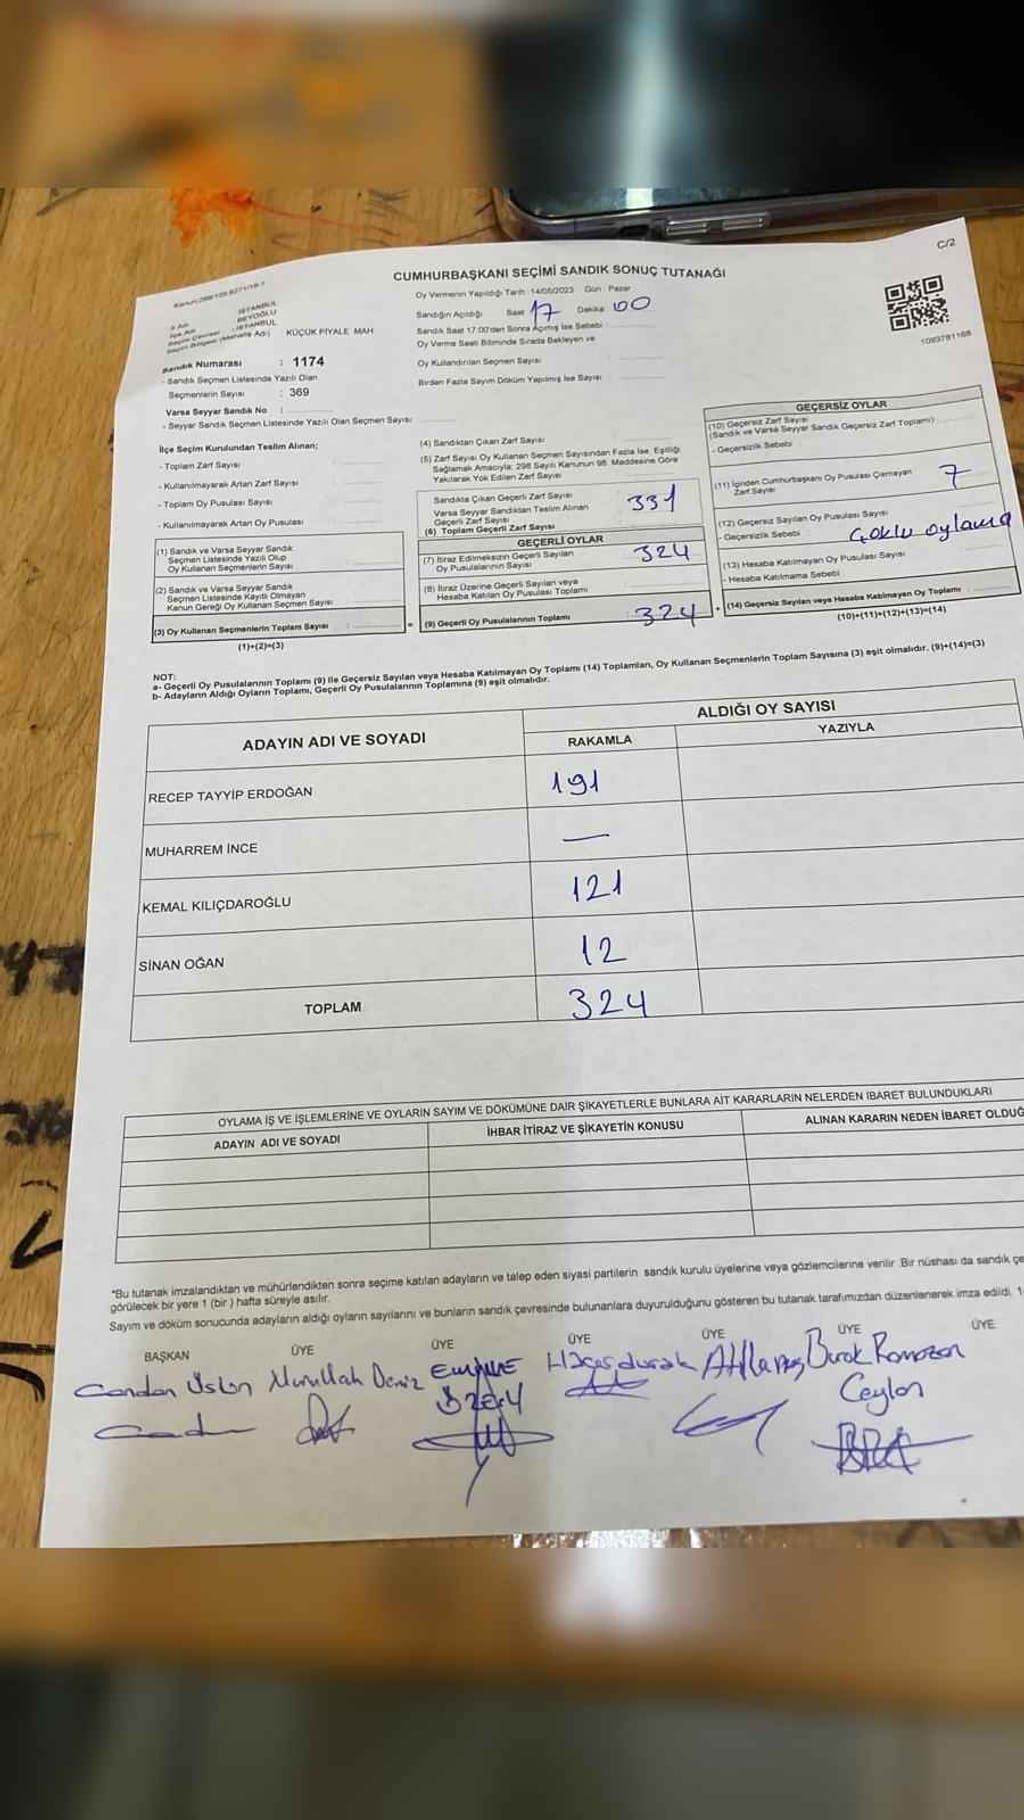 C/2
CUMHURBAŞKANI SEÇİMİ SANDIK SONUÇ TUTANAĞI
Oy Vermenin Yapıldığı Tarih : 14/05/2023 Gün : Pazar
Sandığın Açıldığı Saat 17 Dakika 00
Sandık Saat 17:00'den Sonra Açılmış İse Sebebi
Oy Verme Saati Bitiminde Sırada Bekleyen ve
Oy Kullandırılan Seçmen Sayısı
Birden Fazla Sayım Döküm Yapılmış İse Sayısı
İSTANBUL
BEYOĞLU
İSTANBUL
KÜÇÜK PİYALE MAH
Sandık Numarası : 1174
- Sandık Seçmen Listesinde Yazılı Olan
Seçmenlerin Sayısı : 369
Varsa Seyyar Sandık No :
- Seyyar Sandık Seçmen Listesinde Yazılı Olan Seçmen Sayısı
İlçe Seçim Kurulundan Teslim Alınan;
- Toplam Zarf Sayısı
- Kullanılmayarak Artan Zarf Sayısı
- Toplam Oy Pusulası Sayısı
- Kullanılmayarak Artan Oy Pusulası
(1) Sandık ve Varsa Seyyar Sandık
Seçmen Listesinde Yazılı Olup
Oy Kullanan Seçmenlerin Sayısı
(2) Sandık ve Varsa Seyyar Sandık
Seçmen Listesinde Kayıtlı Olmayan
Kanun Gereği Oy Kullanan Seçmen Sayısı
(3) Oy Kullanan Seçmenlerin Toplam Sayısı :
(1)+(2)=(3)
(4) Sandıktan Çıkan Zarf Sayısı
(5) Zarf Sayısı Oy Kullanan Seçmen Sayısından Fazla İse, Eşitliği
Sağlamak Amacıyla; 298 Sayılı Kanunun 98. Maddesine Göre
Yakılarak Yok Edilen Zarf Sayısı
Sandıkta Çıkan Geçerli Zarf Sayısı
Varsa Seyyar Sandıktan Teslim Alınan
Geçerli Zarf Sayısı
(6) Toplam Geçerli Zarf Sayısı
331
GEÇERLİ OYLAR
(7) İtiraz Edilmeksizin Geçerli Sayılan
Oy Pusulalarının Sayısı
324
(8) İtiraz Üzerine Geçerli Sayılan veya
Hesaba Katılan Oy Pusulası Toplamı
= (9) Geçerli Oy Pusulalarının Toplamı : 324 +
GEÇERSİZ OYLAR
(10) Geçersiz Zarf Sayısı
(Sandık ve Varsa Seyyar Sandık Geçersiz Zarf Toplamı)
- Geçersizlik Sebebi
(11) İçinden Cumhurbaşkanı Oy Pusulası Çıkmayan
Zarf Sayısı
7
(12) Geçersiz Sayılan Oy Pusulası Sayısı
- Geçersizlik Sebebi Çoklu oylama
(13) Hesaba Katılmayan Oy Pusulası Sayısı
- Hesaba Katılmama Sebebi
(14) Geçersiz Sayılan veya Hesaba Katılmayan Oy Toplamı :
(10)+(11)+(12)+(13)=(14)
NOT:
a- Geçerli Oy Pusulalarının Toplamı (9) ile Geçersiz Sayılan veya Hesaba Katılmayan Oy Toplamı (14) Toplamları, Oy Kullanan Seçmenlerin Toplam Sayısına (3) eşit olmalıdır. (9)+(14)=(3)
b- Adayların Aldığı Oyların Toplamı, Geçerli Oy Pusulalarının Toplamına (9) eşit olmalıdır.
ADAYIN ADI VE SOYADI
ALDIĞI OY SAYISI
RAKAMLA YAZIYLA
RECEP TAYYİP ERDOĞAN 191
MUHARREM İNCE —
KEMAL KILIÇDAROĞLU 121
SİNAN OĞAN 12
TOPLAM 324
OYLAMA İŞ VE İŞLEMLERİNE VE OYLARIN SAYIM VE DÖKÜMÜNE DAİR ŞİKAYETLERLE BUNLARA AİT KARARLARIN NELERDEN İBARET BULUNDUKLARI
ADAYIN ADI VE SOYADI İHBAR İTİRAZ VE ŞİKAYETİN KONUSU ALINAN KARARIN NEDEN İBARET OLDUĞ
*Bu tutanak imzalandıktan ve mühürlendikten sonra seçime katılan adayların ve talep eden siyasi partilerin sandık kurulu üyelerine veya gözlemcilerine verilir. Bir nüshası da sandık çe
görülecek bir yere 1 (bir ) hafta süreyle asılır.
Sayım ve döküm sonucunda adayların aldığı oyların sayılarını ve bunların sandık çevresinde bulunanlara duyurulduğunu gösteren bu tutanak tarafımızdan düzenlenerek imza edildi. 1
BAŞKAN ÜYE ÜYE ÜYE ÜYE ÜYE ÜYE
Candan Üstün Nurullah Deniz Emine Burak Ramazan
Ceylan